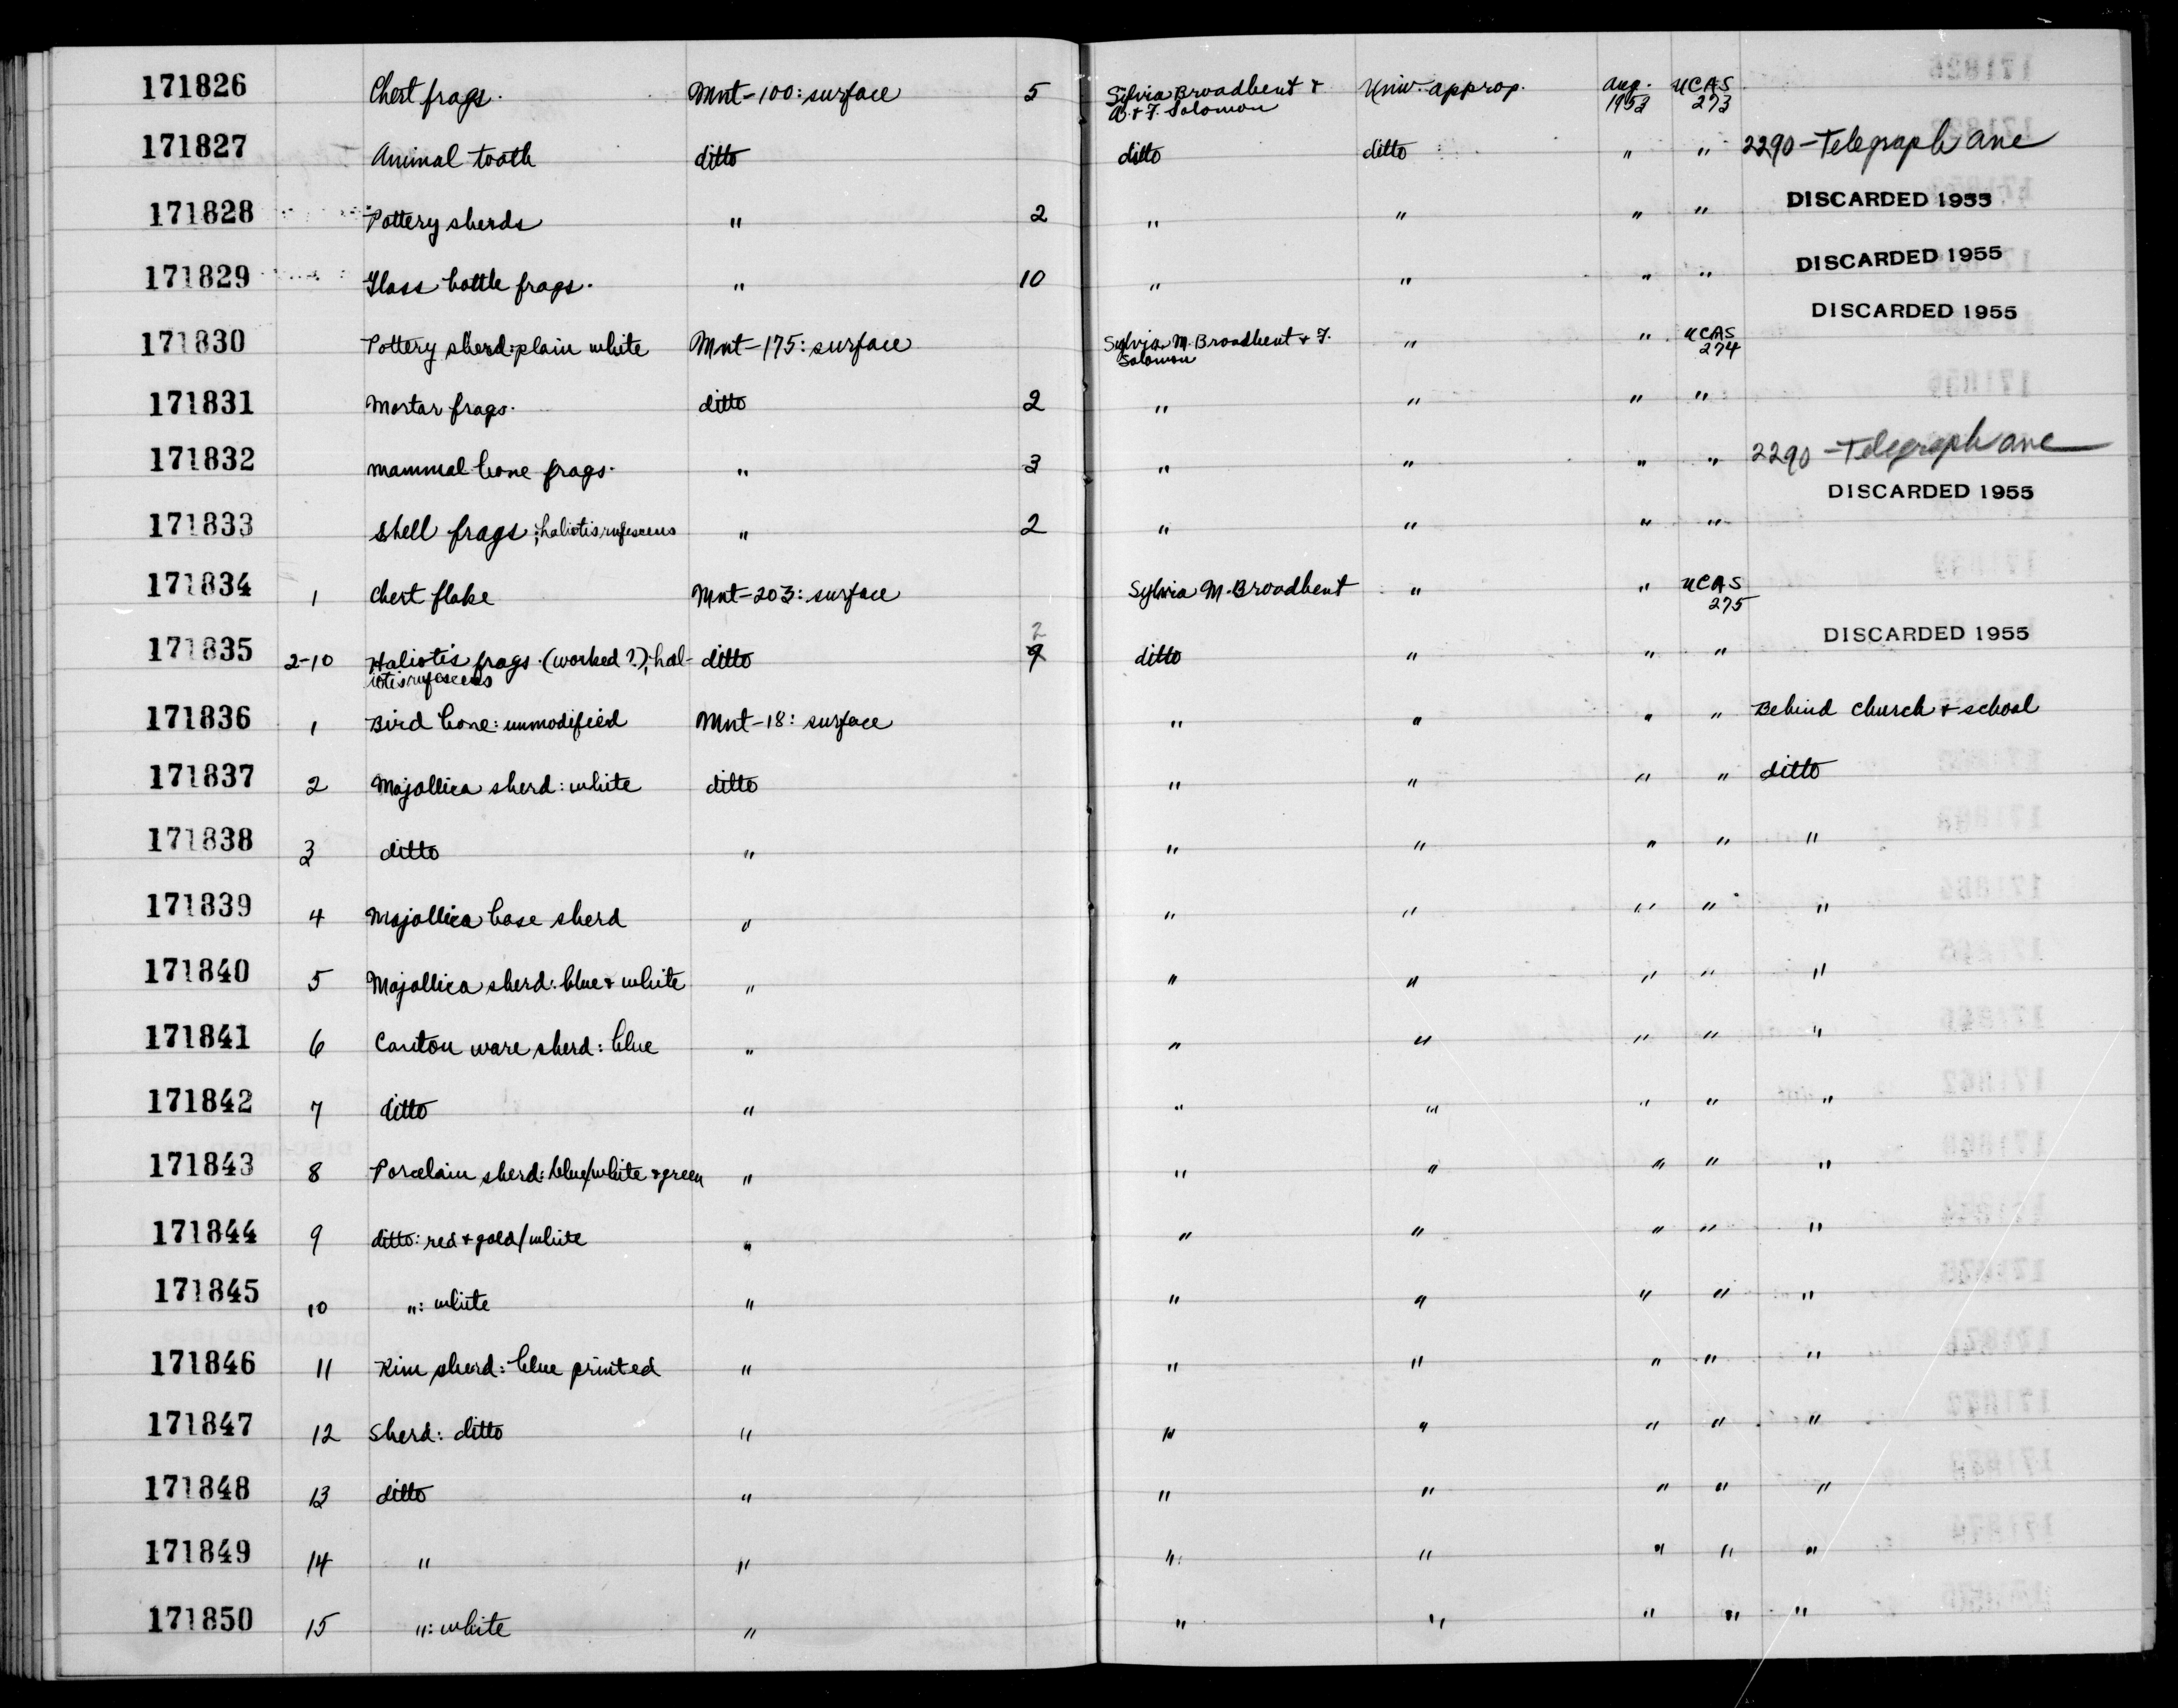 171826 Chert frags. Mnt-100: surface 5 Sylvia Broadbent + Univ. approp. Aug. UCAS
B. + F. Solomon 1953 273
171827 Animal tooth ditto ditto ditto " " 2290-Telegraph Ave
171828 Pottery sherds " 2 " " " " DISCARDED 1955
171829 Glass bottle frags. " 10 " " " " DISCARDED 1955
DISCARDED 1955
171830 Pottery sherd: plain white Mnt-175: surface Sylvia M. Broadbent + F. " " UCAS
Solomon 274
171831 Mortar frags. ditto 2 " " " "
171832 mammal bone frags. " 3 " " " " 2290-Telegraph Ave
DISCARDED 1955
171833 shell frags; haliotis rufescens " 2 " " " "
171834 1 Chert flake Mnt-203: surface Sylvia M. Broadbent " " UCAS
275
171835 2-10 Haliotis frags. (worked?); hal- ditto 9 2 ditto " " " DISCARDED 1955
iotis rufescens
171836 1 Bird bone: unmodified Mnt-18: surface " " " " Behind church + school
171837 2 Majollica sherd: white ditto " " " " ditto
171838 3 ditto " " " " " "
171839 4 Majollica base sherd " " " " " "
171840 5 Majollica sherd: blue + white " " " " " "
171841 6 Canton ware sherd: blue " " " " " "
171842 7 ditto " " " " " "
171843 8 Porcelain sherd: blue/white + green " " " " " "
171844 9 ditto: red + gold/white " " " " " "
171845 10 ": white " " " " " "
171846 11 Rim sherd: blue printed " " " " " "
171847 12 Sherd: ditto " " " " " "
171848 13 ditto " " " " " "
171849 14 " " " " " " "
171850 15 ": white " " " " " "